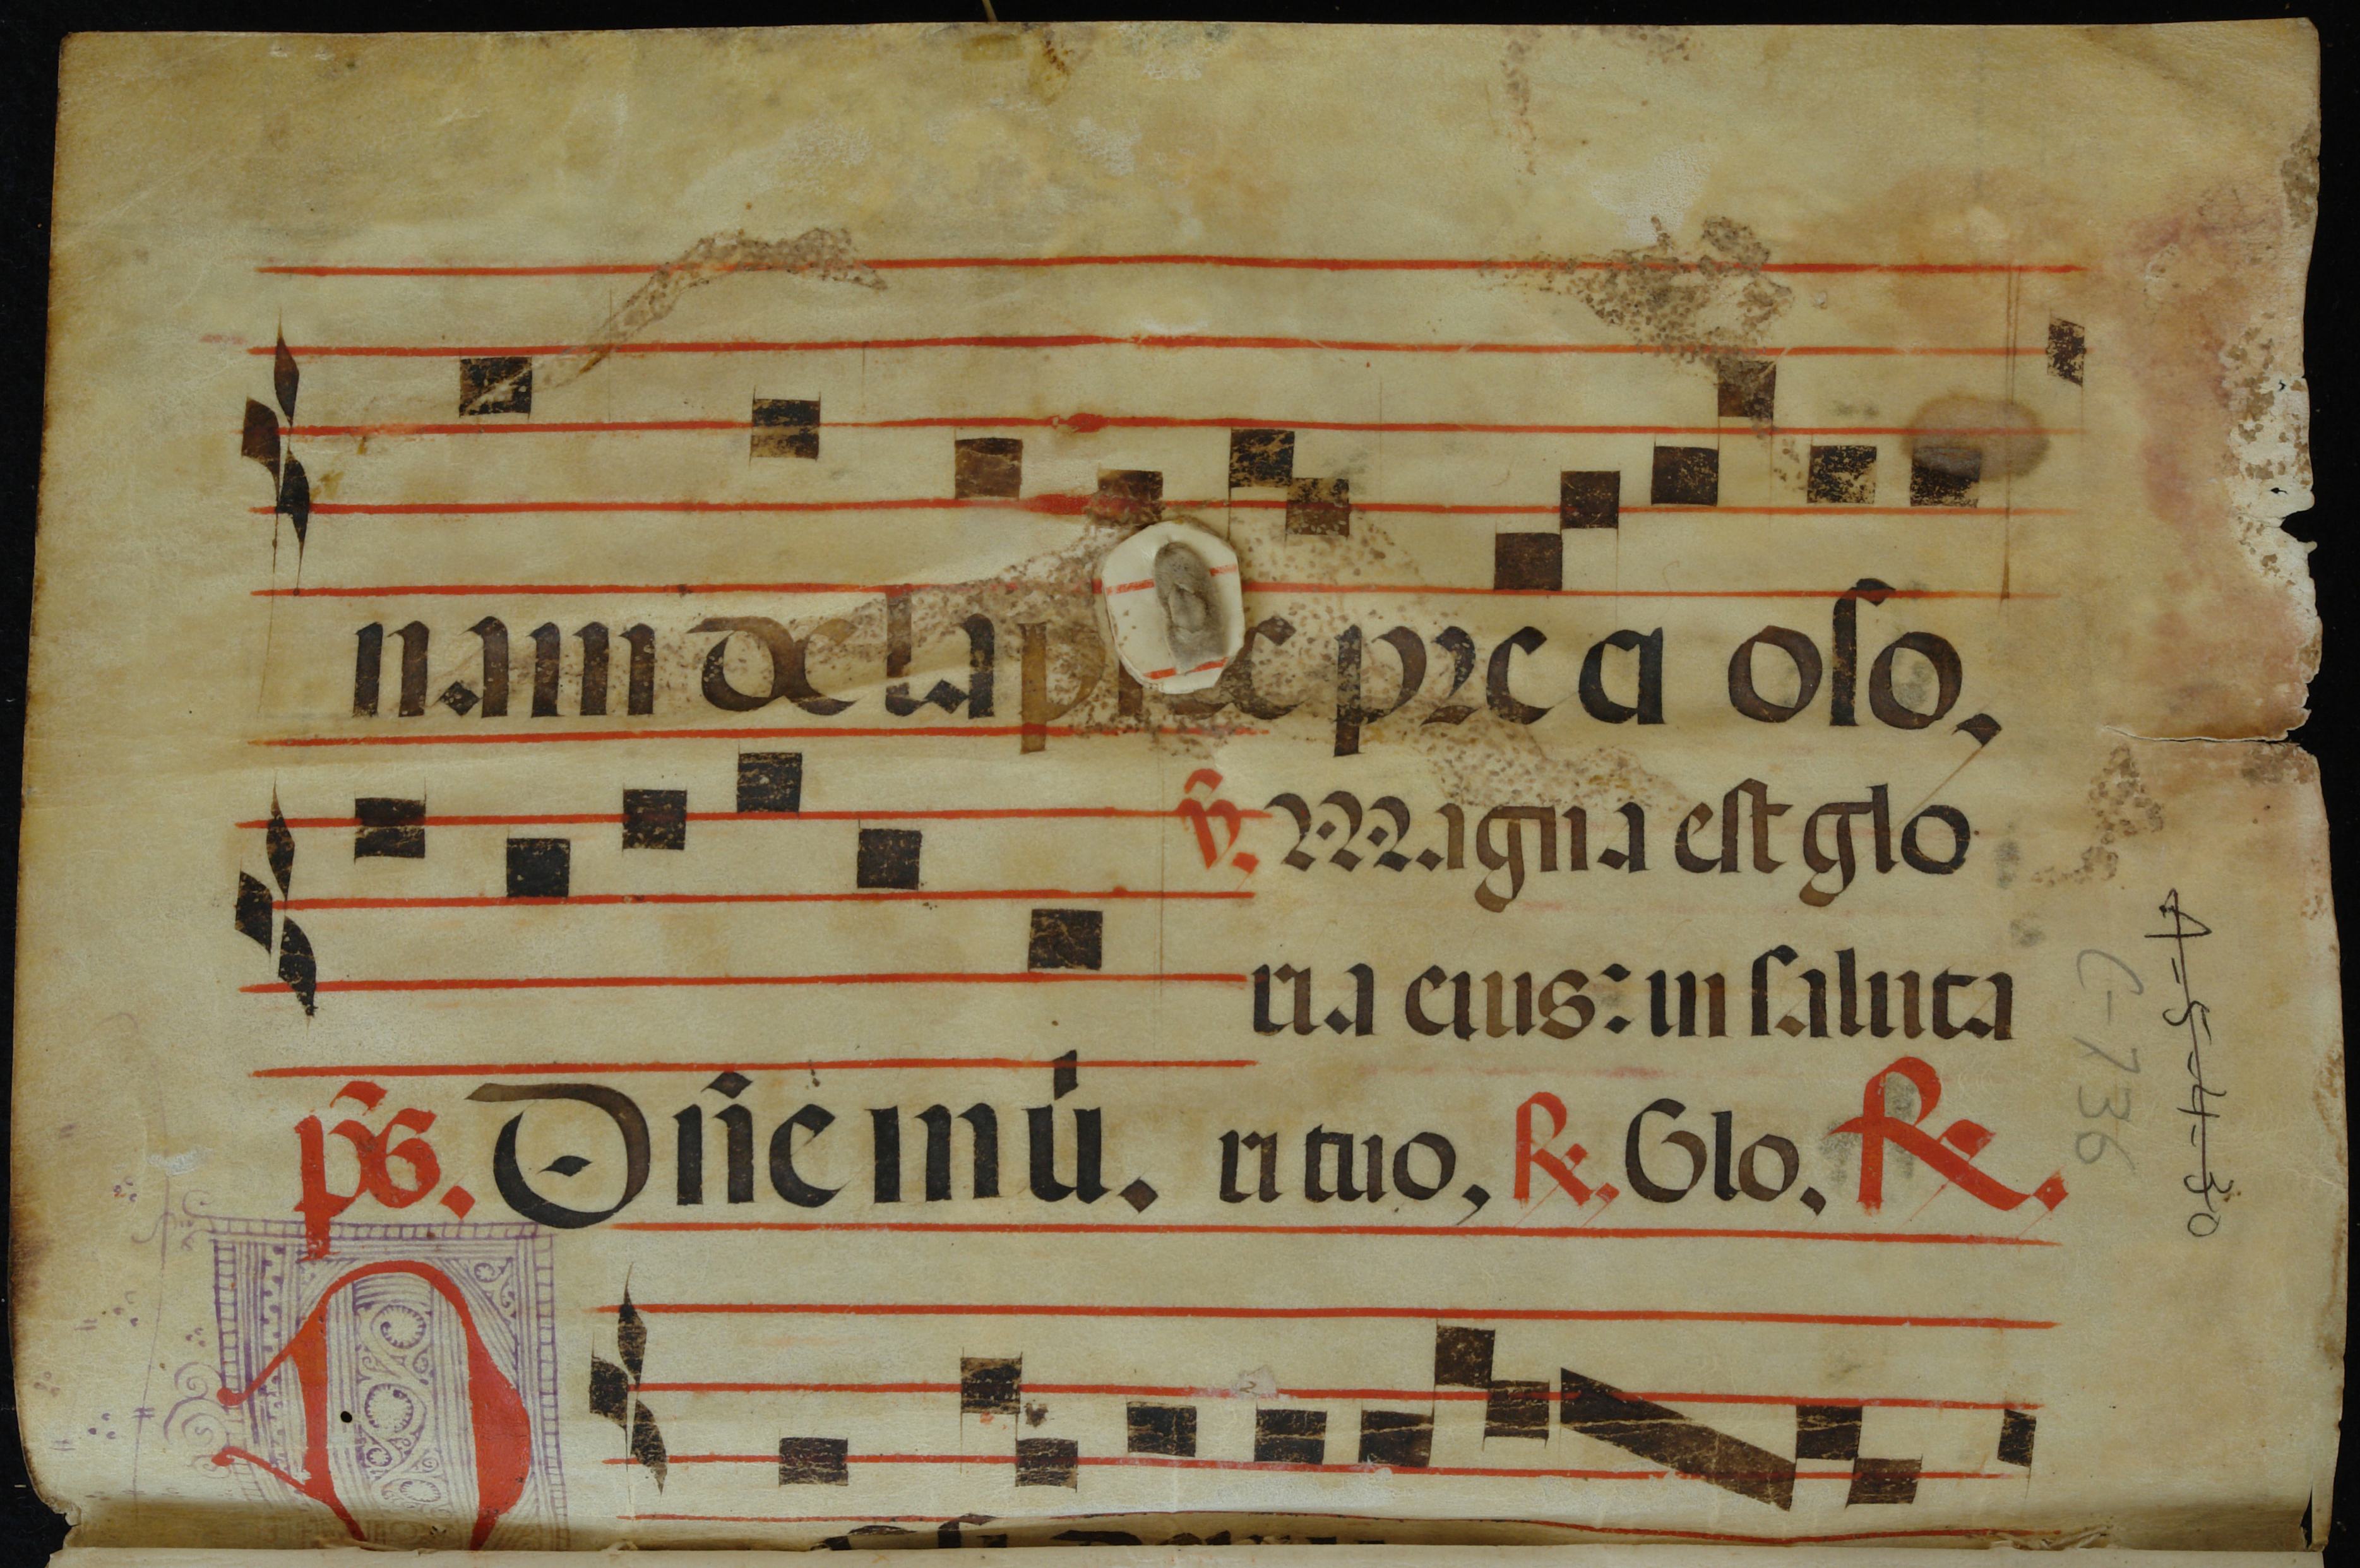 nam de lapide precioso,
ꝟ. Magna est glo
ria eius: in saluta
ps. Dñe in ũ. ri tuo, ℟. Glo. ℟.
A-5-4-30
C-736